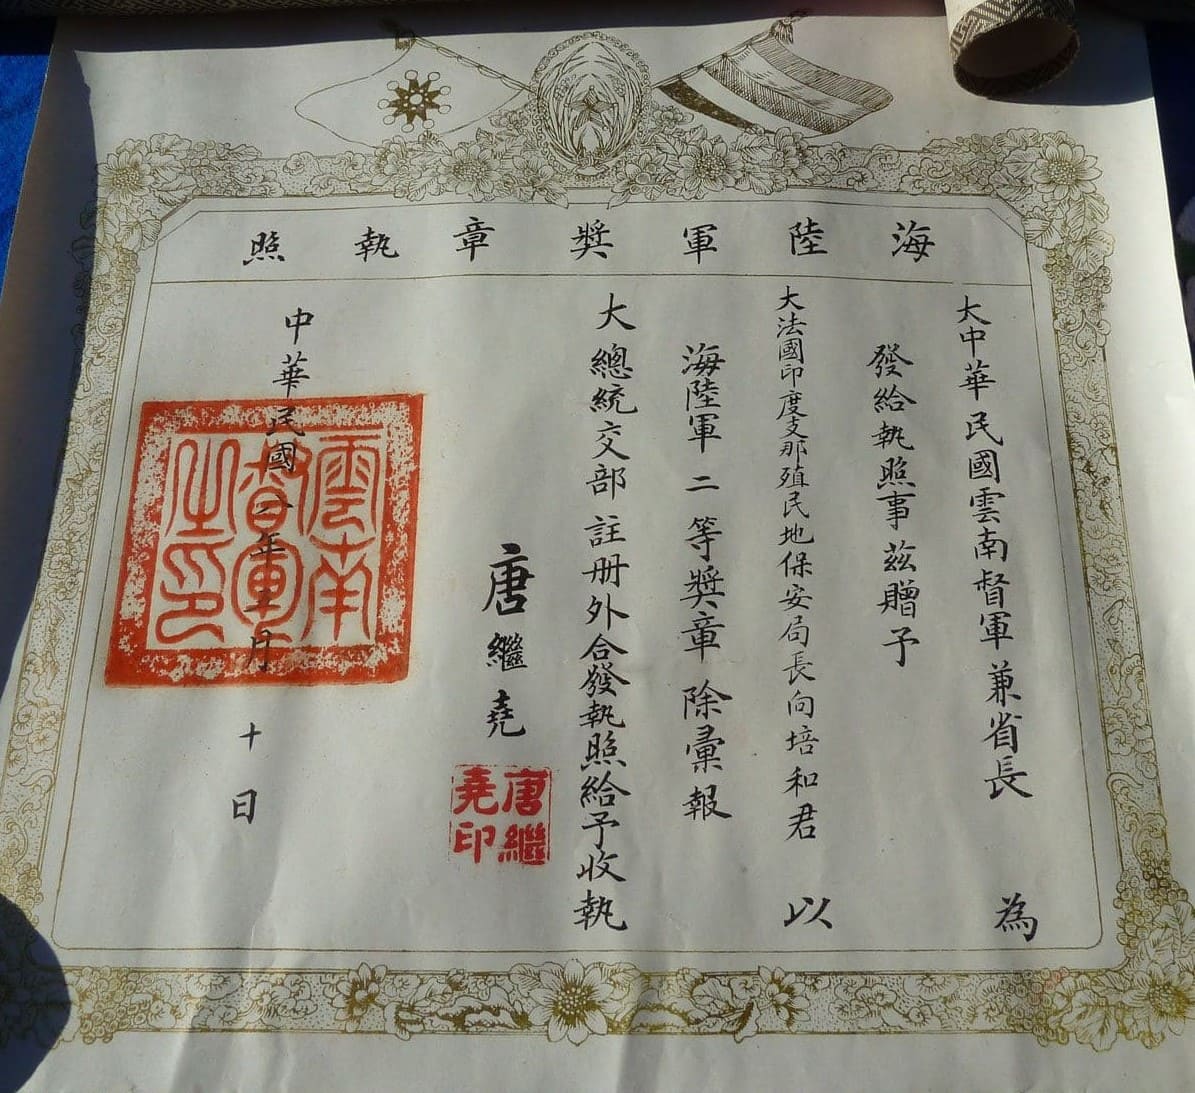 海陸軍奬章執照
大中華民國雲南督軍兼省長 為
發給執照事茲贈予
大法國印度支那殖民地保安局長向培和君 以
海陸軍二等奬章除彙報
大總統交部註册外合發執照給予收執
唐繼堯
唐繼堯印
中華民國八年五月十日
雲南督軍之印